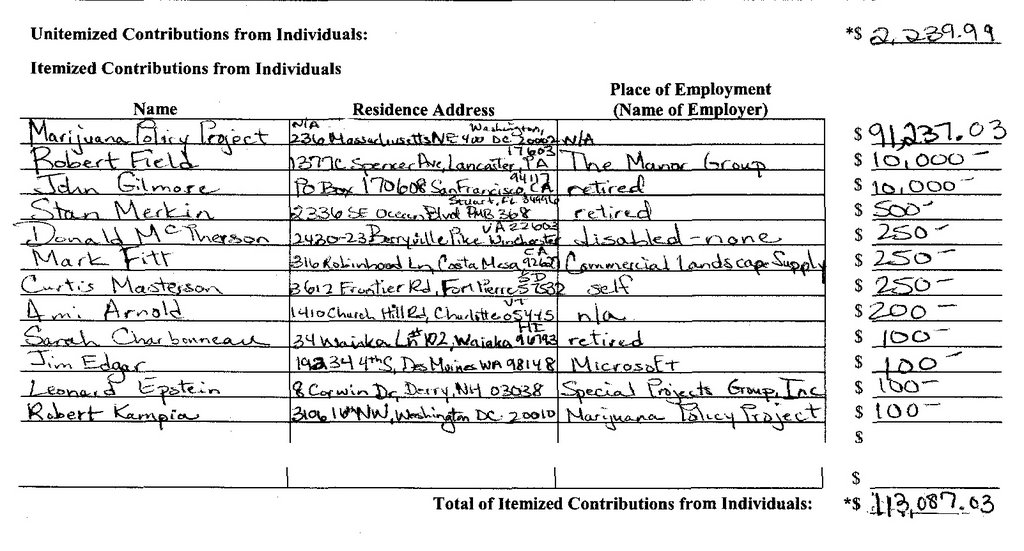 Unitemized Contributions from Individuals: *$ 2,239.99
Itemized Contributions from Individuals
Place of Employment
Name Residence Address (Name of Employer)
N/A Washington,
Marijuana Policy Project 236 Massachusetts NE 400 DC 20002 N/A $ 91,237.03
17603
Robert Field 1377C Spencer Ave, Lancaster, PA The Manor Group $ 10,000-
94117
John Gilmore PO Box 170608 San Francisco, CA retired $ 10,000-
Stuart, FL 34996
Stan Merkin 2336 SE Ocean Blvd PMB 368 retired $ 500-
VA 22603
Donald McPherson 2430-23 Berryville Pike Winchester disabled-none $ 250-
CA
Mark Fitt 316 Robinhood Ln, Costa Mesa 92627 Commercial Landscape Supply $ 250-
SD
Curtis Masterson 3612 Frontier Rd, Fort Pierre 57532 self $ 250-
VT
Ami Arnold 1410 Church Hill Rd, Charlotte 05445 n/a $ 200-
HI
Sarah Charbonneau 34 Waiaka Ln #102, Waiaka 96793 retired $ 100-
Jim Edgar 19234 4th S, Des Moines WA 98148 Microsoft $ 100-
Leonard Epstein 8 Corwin Dr, Derry, NH 03038 Special Projects Group, Inc $ 100-
Robert Kampia 3106 16th NW, Washington DC 20010 Marijuana Policy Project $ 100-
$
$
Total of Itemized Contributions from Individuals: *$ 113,087.03